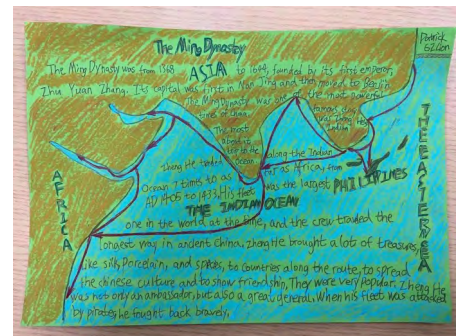 The Ming Dynasty
The Ming Dynasty was from 1368 ASIA to 1644, founded by its first emperor,
Zhu Yuan Zhang. Its capital was first in Nan Jing and then moved to Beijing
The Ming Dynasty was one of the most powerful
times of China.
famous
was Zheng He
Indian
The most
zheng He traded along the Indian
Ocean 7 times to as far as Africa, from
AD 1405 to 1433. His fleet was the largest PHILIPINES
THE INDIAN OCEAN
one in the world at the time, and the crew traveled the
longest way in ancient China. Zheng He brought a lot of treasures,
like silk, Porcelain, and spices, to countries along the route, to spread
the chinese culture and to show friendship. They were very popular. Zheng He
was not only an ambassador, but also a great general. When his fleet was attacked
by pirates, he fought back bravely.
AFRICA